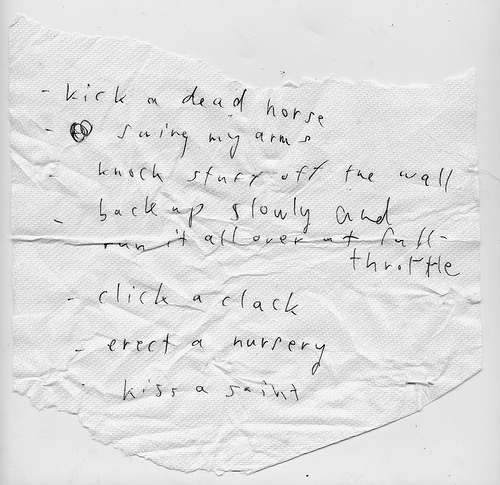 - kick a dead horse
- swing my arms
- knock stuff off the wall
- back up slowly and
run it all over at full-
throttle
- click a clack
- erect a nursery
- kiss a saint